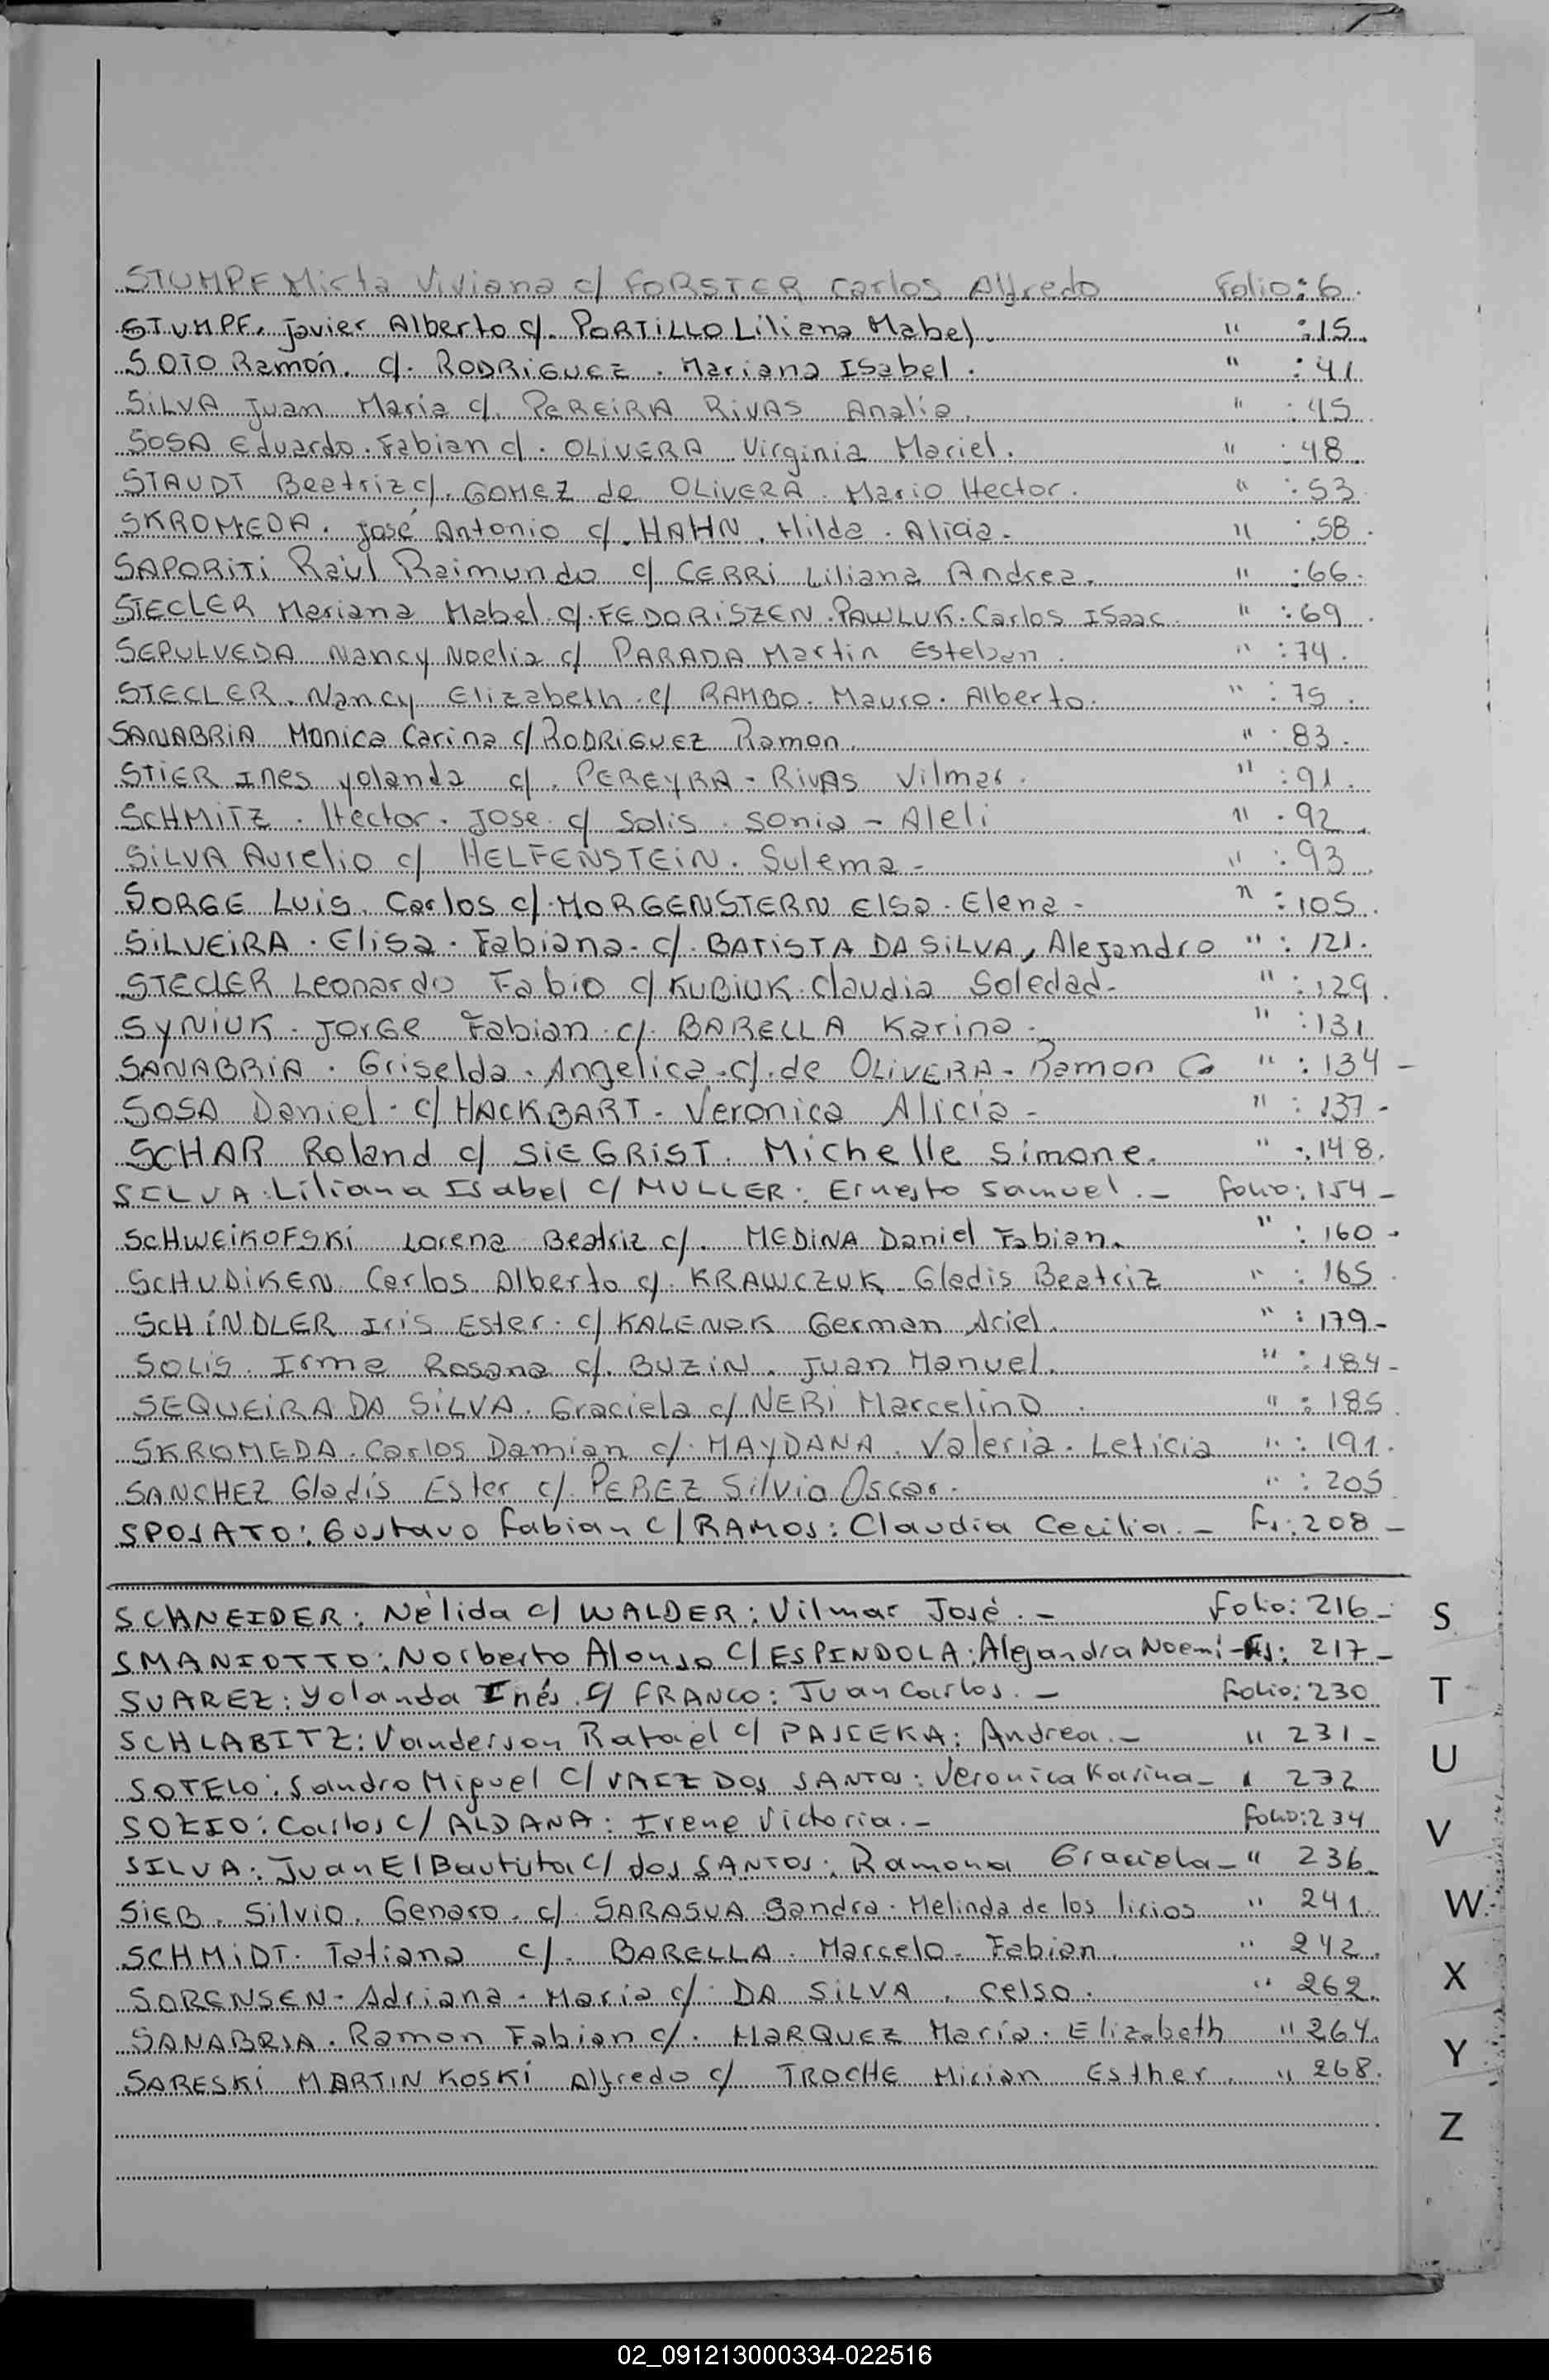 STUMPF Mirta Viviana c/ FORSTER Carlos Alfredo Folio: 6.
STUMPF. Javier Alberto c/. PORTILLO Liliana Mabel. " :15.
SOTO Ramón. c/. RODRIGUEZ. Mariana ISabel. " : 41
SILVA Juan Maria c/. PEREIRA RIVAS Analia. " : 45
SOSA Eduardo. Fabian c/. OLIVERA Virginia Mariel. " : 48.
STAUDT Beatriz c/. GOMEZ de OLIVERA. Mario Hector. " : 53
SKROMEDA. José Antonio c/. HAHN. Hilda. Alicia. " : 58.
SAPORITI Raúl Raimundo c/ CERRI Liliana Andrea. " :66.
STECLER Mariana Mabel c/. FEDORISZEN. PAWLUK. Carlos ISaac. " : 69.
SEPULVEDA Nancy Noelia c/ PARADA Martin Esteban. " : 74.
STECLER. Nancy Elizabeth. c/ RAMBO. Mauro. Alberto. " : 75.
SANABRIA Monica Carina c/ RODRIGUEZ Ramon. " : 83.
STIER Ines yolanda c/. PEREYRA - RIVAS Vilmar. " : 91.
SCHMITZ. Hector. Jose. c/ Solis. Sonia - Aleli " . 92.
SILVA Aurelio c/ HELFENSTEIN. Sulema - " : 93.
SORGE Luis. Carlos c/. MORGENSTERN Elsa. Elena - " : 105.
SILVEIRA. Elisa. Fabiana- c/. BATISTA DA SILVA, Alejandro " : 121.
STECLER Leonardo Fabio c/ KUBIUK. Claudia Soledad- " : 129.
SYNIUK. JORGE Fabian. c/. BARELLA Karina. " : 131
SANABRIA. Griselda. Angelica. c/. de OLIVERA - Ramon C. " : 134 -
SOSA Daniel - c/ HACKBART - Veronica Alicia - " : 137 -
SCHAR Roland c/ SIEGRIST. Michelle Simone. " : 148.
SILVA: Liliana Isabel c/ MULLER: Ernesto Samuel. - folio: 154 -
SCHWEIKOFSKI Lorena Beatriz c/. MEDINA Daniel Fabian. " : 160 -
SCHUDIKEN Carlos Alberto c/. KRAWCZUK. Gladis Beatriz " : 165.
SCHINDLER Iris Ester. c/ KALENOK German Ariel. " : 179 -
SOLIS. Irma Rosana c/. BUZIN. Juan Manuel. " : 184 -
SEQUEIRA DA SILVA. Graciela c/ NERI Marcelino. " : 185.
SKROMEDA. Carlos Damian c/. MAYDANA. Valeria. Leticia " : 191.
SANCHEZ Gladis Ester c/. PEREZ Silvio Oscar. " : 205
SPOSATO: Gustavo Fabian c/ RAMOS: Claudia Cecilia. - Fs: 208 -
SCHNEIDER: Nélida c/ WALDER: Vilmar José. - Folio: 216 -
SMANIOTTO: Norberto Alonso c/ ESPINDOLA: Alejandra Noemi - Fs: 217 -
SUAREZ: Yolanda Inés c/ FRANCO: Juan Carlos. - Folio: 230
SCHLABITZ: Vanderson Rafael c/ PASIEKA: Andrea. - " 231 -
SOTELO: Sandro Miguel c/ VAEZ DOS SANTOS: Veronica Karina - " 232
SOZIO: Carlos c/ ALDANA: Irene Victoria. - folio: 234
SILVA: Juan El Bautista c/ dos SANTOS: Ramona Graciela - " 236.
SIEB. Silvio. Genaro. c/ SARASUA Sandra. Melinda de los lirios " 241.
SCHMIDT. Tatiana c/. BARELLA. Marcelo. Fabian. " 242.
SORENSEN - Adriana. Maria c/. DA SILVA. Celso. " 262.
SANABRIA. Ramon Fabian c/. MARQUEZ María. Elizabeth " 264.
SARESKI MARTINKOSKI Alfredo c/ TROCHE Mirian Esther. " 268.
S
T
U
V
W
X
Y
Z
02_091213000334-022516